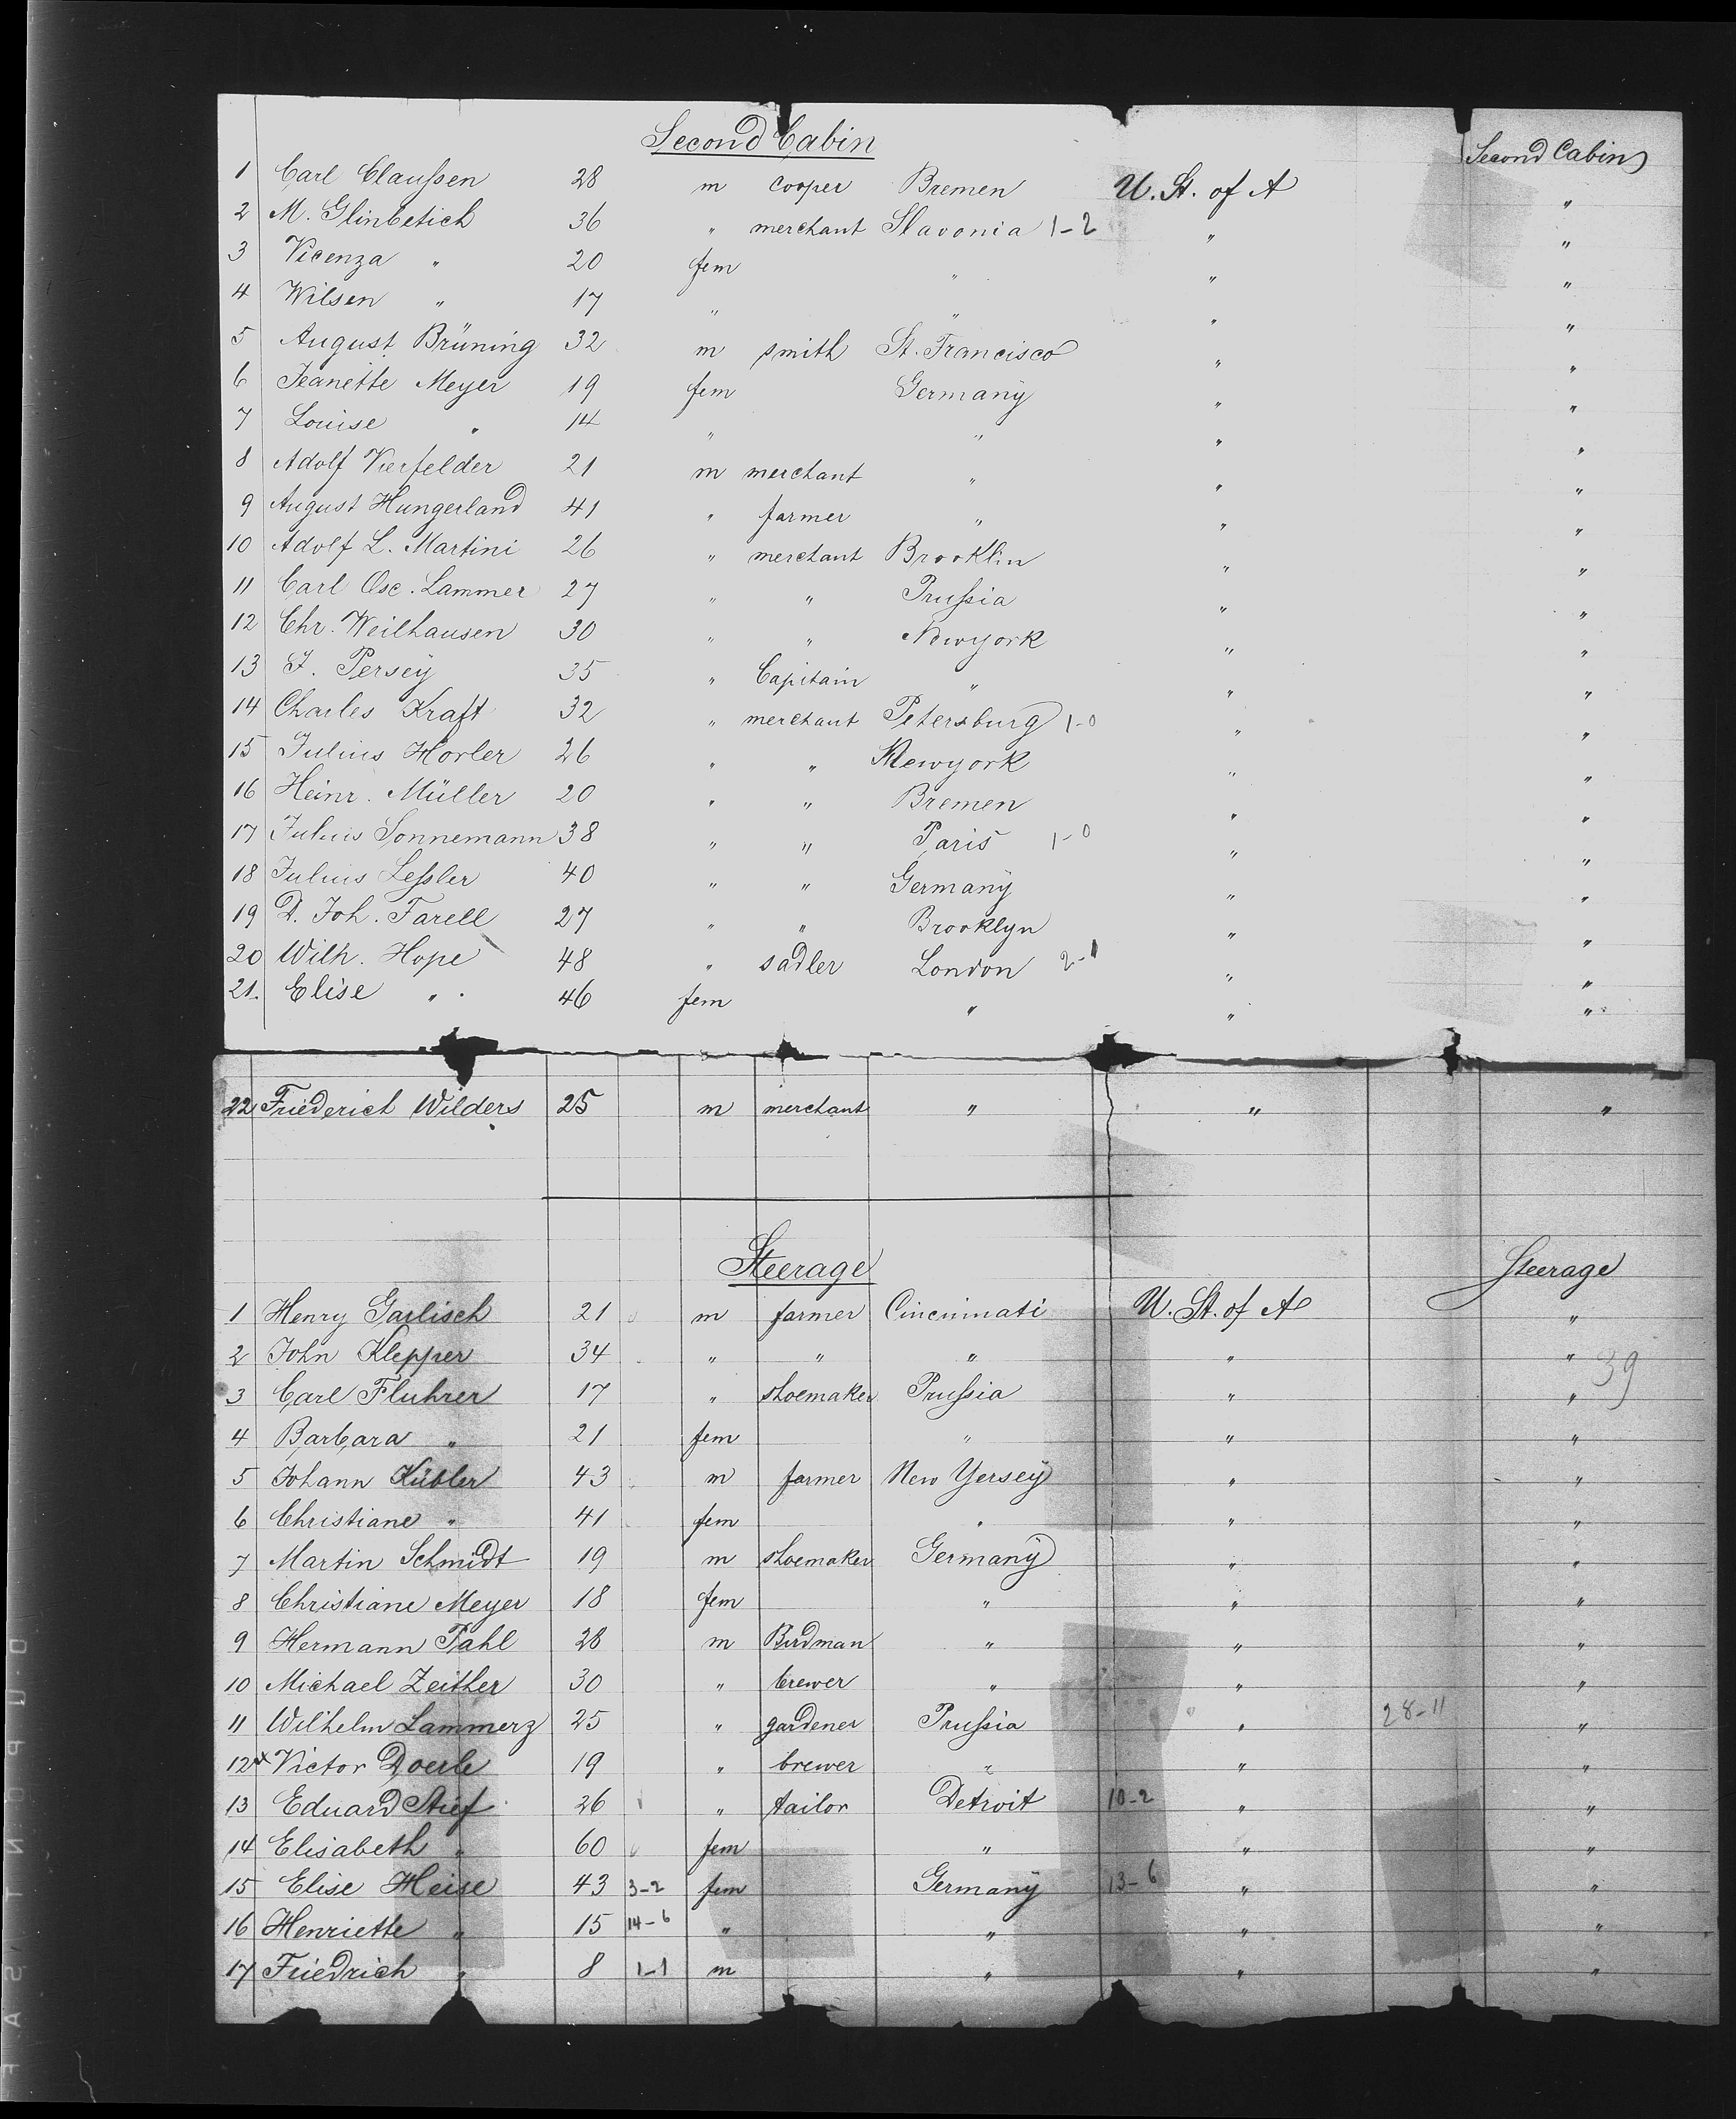 Second Cabin Second Cabin
1 Carl Claußen 28 m cooper Bremen U. St. of A "
2 M. Glinbetich 36 " merchant Slavonia 1-2 " "
3 Vicenza " 20 fem " " "
4 Wilsen " 17 " " " "
5 August Brüning 32 m smith St. Francisco " "
6 Jeanette Meyer 19 fem Germany " "
7 Louise " 14 " " " "
8 Adolf Vierfelder 21 m merchant " " "
9 August Hungerland 41 " farmer " " "
10 Adolf L. Martini 26 " merchant Brooklin " "
11 Carl Osc. Lammer 27 " " Prußia " "
12 Chr. Weilhausen 30 " " Newyork " "
13 F. Persey 35 " Capitain " " "
14 Charles Kraft 32 " merchant Petersburg 1-0 " "
15 Julius Horler 26 " " Newyork " "
16 Heinr. Müller 20 " " Bremen " "
17 Julius Sonnemann 38 " " Paris 1-0 " "
18 Julius Leßler 40 " " Germany " "
19 D. Joh. Farell 27 " " Brooklyn " "
20 Wilh. Hope 48 " sadler London 2-1 " "
21. Elise " 46 fem " " "
22 Friederich Wilders 25 m merchant " " "
Steerage Steerage
1 Henry Garlisch 21 m farmer Cincinnati U. St. of A "
2 John Klepper 34 " " " " " 39
3 Carl Fluhrer 17 " shoemaker Prußia " "
4 Barbara " 21 fem " " "
5 Johann Kübler 43 m farmer New Yersey " "
6 Christiane " 41 fem " " "
7 Martin Schmidt 19 m shoemaker Germany " "
8 Christiane Meyer 18 fem " " "
9 Hermann Pahl 28 m Birdman " " "
10 Michael Zeitler 30 " brewer " " "
11 Wilhelm Lammerz 25 " gardener Prußia " 28-11 "
12 x Victor Doerle 19 " brewer " " "
13 Eduard Stief 26 " tailor Detroit 10-2 " "
14 Elisabeth " 60 fem " " "
15 Elise Heise 43 3-2 fem Germany 13-6 " "
16 Henriette " 15 14-6 " " " "
17 Friedrich " 8 1-1 m " " "